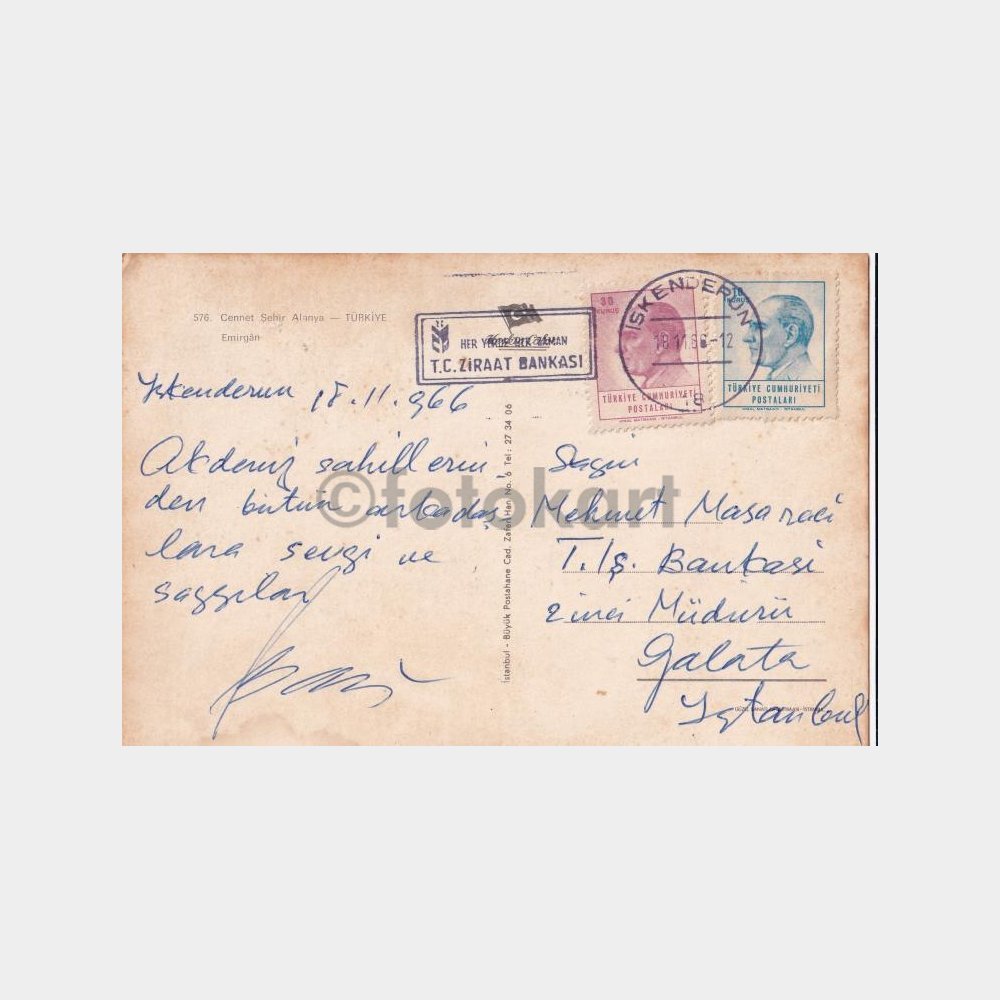 576. Cennet Şehir Alanya — TÜRKİYE
Emirgân
HER YERDE HER ZAMAN
T.C. ZİRAAT BANKASI
30
KURUŞ
TÜRKİYE CUMHURİYETİ
POSTALARI
İSKENDERUN
18.11.66-12
10
KURUŞ
TÜRKİYE CUMHURİYETİ
POSTALARI
İskenderun 18.11.966
Akdeniz sahillerin
den bütün arkadaş
lara sevgi ve
saygılar
İstanbul - Büyük Postahane Cad. Zafer Han No. 6 Tel: 27 34 06
Sayın
Mehmet
T. İş. Bankası
2inci Müdürü
Galata
İstanbul
©fotokart